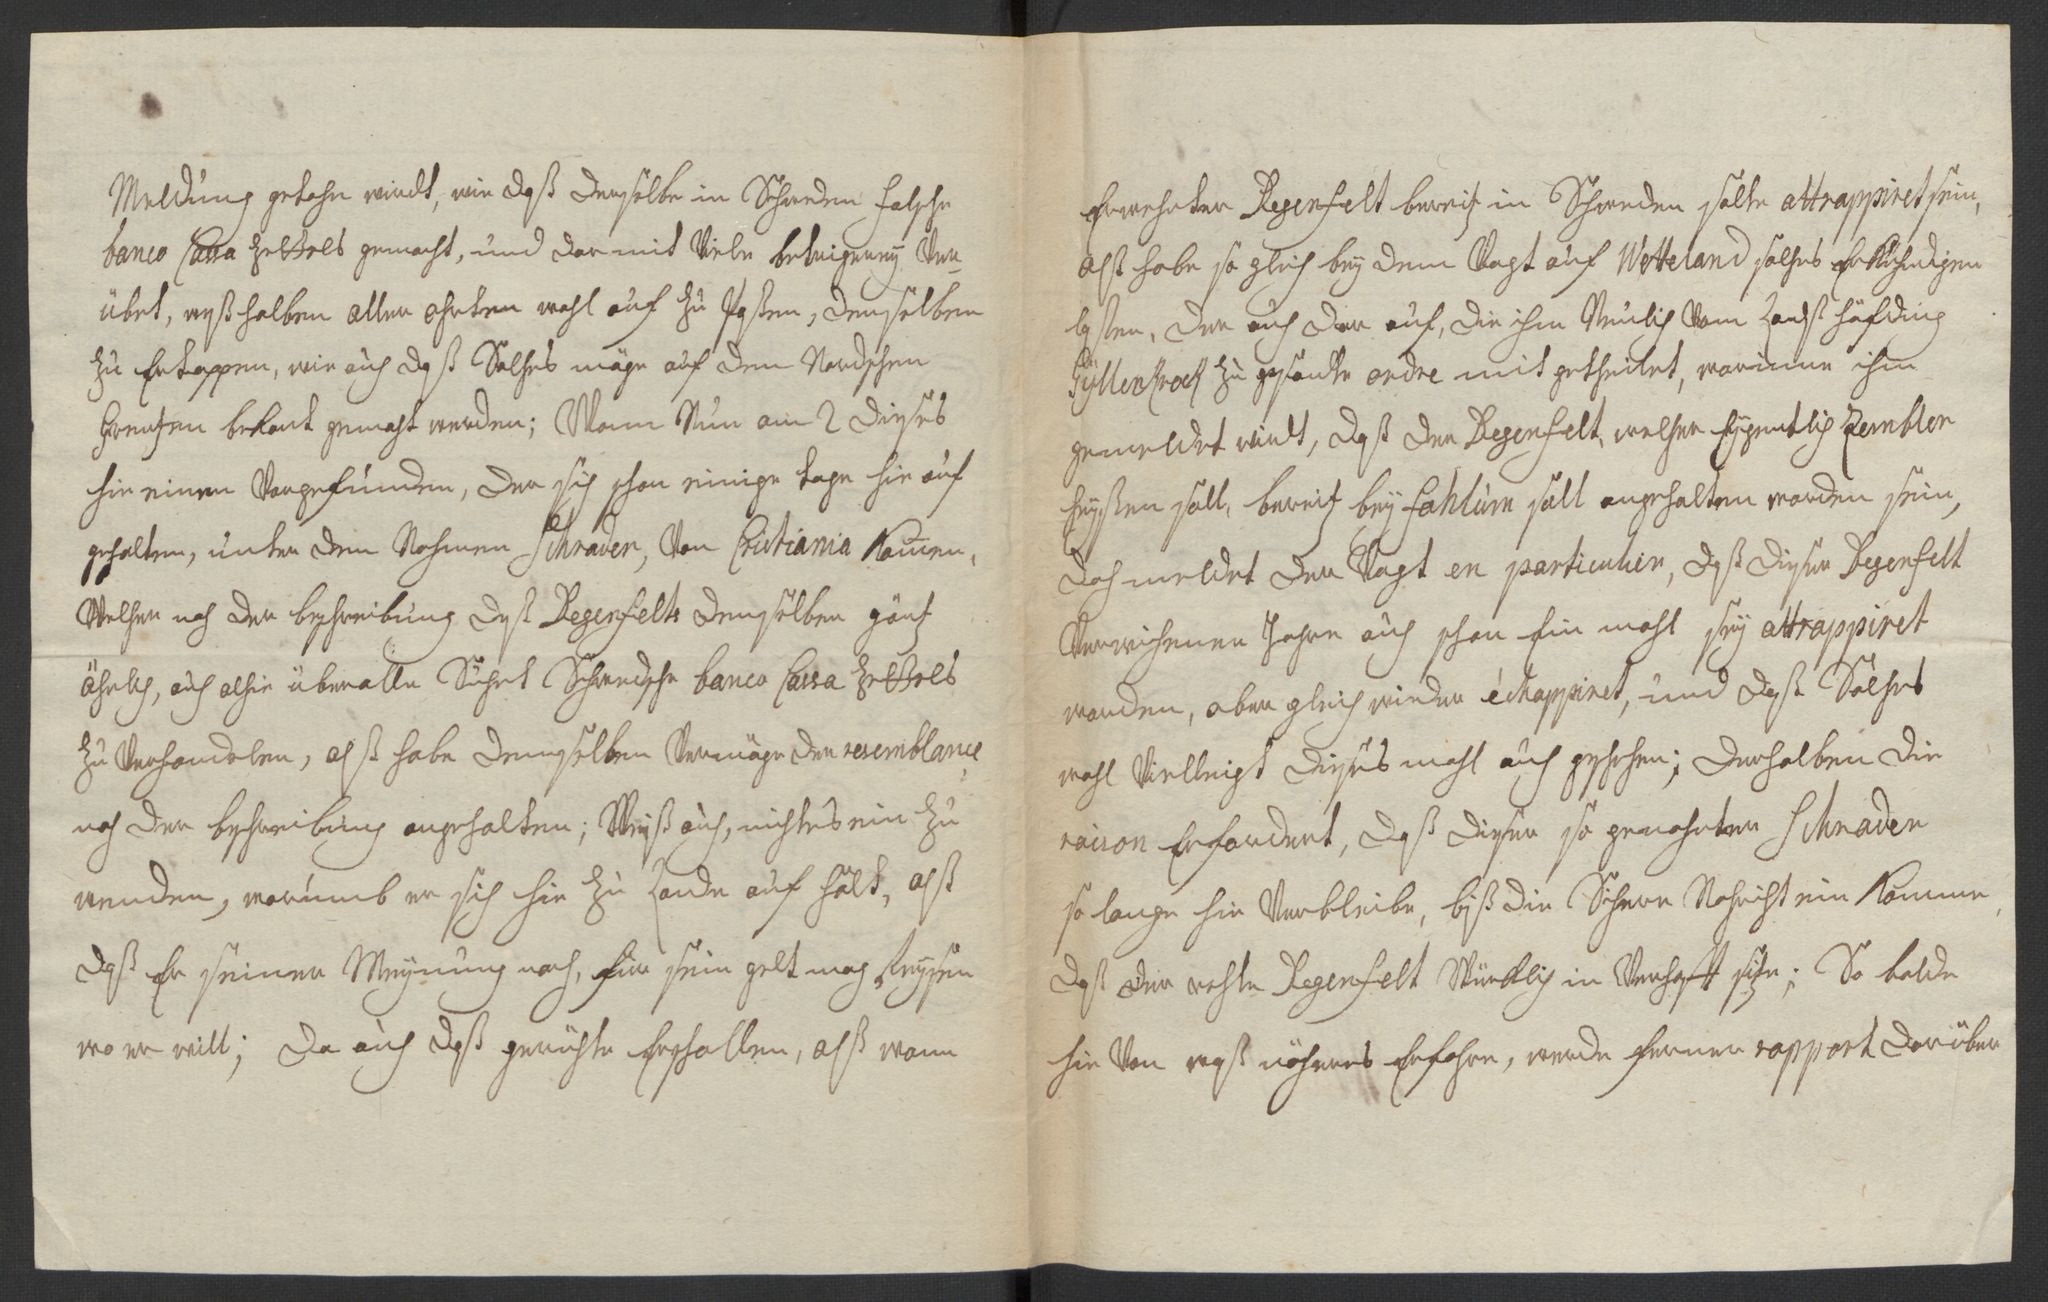 Meldung gethan wirdt, wie daß derselbe in Schweden falsche
banco Cassa Zettels gemacht, und dar mit viele betrigerey Ver-
übet, weßhalben aller ohrten wohl auf zu paßen, denselben
zu Ertappen, wie auch daß Solches möge auf den Nordschen
Grentzen bekant gemacht werden; Wann Nun am 2 dieses
hie einen Vorgefunden, der sich schon einige tage hie auf
gehalten, unter dem Nahmen Schrader, von Cristiania Komen,
Welcher nach der beschreibung deß Degenfelts demselben gantz
ährlich, auch alhie überalle Suchet Schwedsche banco Cassa Zettels
zu Verhandelen, alß habe demselben Vermöge der resemblance
nach der beschreibung angehalten; Weiß auch, nichtes ein zu
wenden, worumb er sich hie zu Lande auf hält, alß
daß Er seiner Meynung nach, für sein gelt mag Reysen
wo er will; Da auch daß gerüchte Erschallen, alß wann
Erwehnter Degenfelt bereitz in Schweden solte attrappiret sein,
alß habe so gleich bey dem Vogt auf Wetteland solches Erkundigen
laßen, der auch dar auf, die ihm Neulich vom Landß höfding
Gyllenkrock zu gesandte ordre mit getheilet, worinne ihm
gemeldet wirdt, daß der Degenfelt, welcher Eygentlich Zembler
heyßen soll, bereitz bey Fahlum soll angehalten worden sein,
doch meldet der Vogt en particulier, daß dieser Degenfelt
Verwichenen Jahre auch schon Ein mahl sey attrappiret
worden, aber gleich wieder échappiret, und daß Solches
wohl Vielleigt dieses mahl auch geschehen; derhalben die
raison Erfordert, daß dieser so genahnter Schrader
so lange hie Verbleibe, biß die Sichere Nachricht ein Komme,
daß der rechte Degenfelt Würcklich in Verhafft sitze; So balde
hie von waß nöheres Erfahre, werde ferner rapport darüber